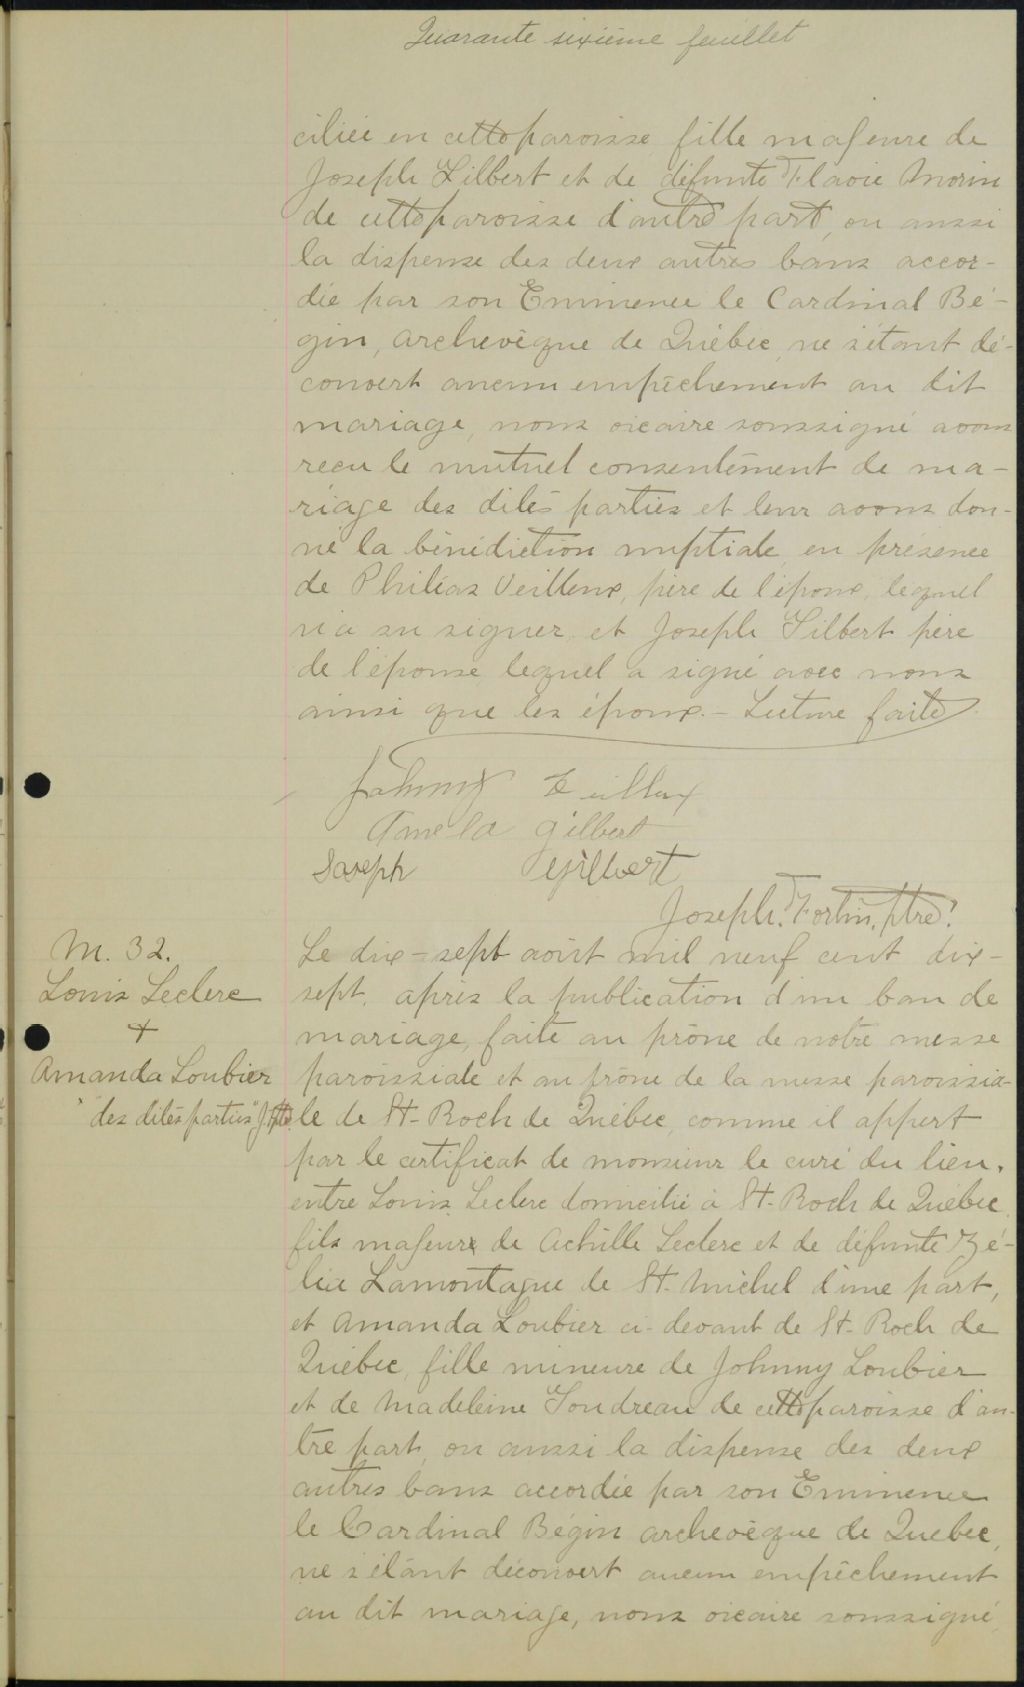 Quarante sixième feuillet
ciliée en cette paroisse, fille majeure de
Joseph Gilbert et de défunte Flavie Morin
de cette paroisse d'autre part, vu aussi
la dispense des deux autres bans accor-
dée par son Eminence le Cardinal Bé-
gin, archevêque de Québec, ne s'étant dé-
couvert aucun empêchement au dit
mariage, nous vicaire soussigné avons
reçu le mutuel consentement de ma-
riage des dites parties et leur avons don-
né la bénédiction nuptiale en présence
de Philéas Veilleux, père de l'époux, lequel
n'a su signer, et Joseph Gilbert père
de l'épouse, lequel a signé avec nous
ainsi que les époux. - Lecture faite.
Johnny Veilleux
Amela Gilbert
Joseph Gilbert
Joseph. Fortin, ptre.
M. 32.
Louis Leclerc
+
Amanda Loubier
"des dites parties"
Le dix-sept août mil neuf cent dix-
sept, après la publication d'un ban de
mariage, faite au prône de notre messe
paroissiale et au prône de la messe paroissia-
le de St-Roch de Québec, comme il appert
par le certificat de monsieur le curé du lieu,
entre Louis Leclerc domicilié à St-Roch de Québec,
fils majeur de Achille Leclerc et de défunte Zé-
lia Lamontagne de St. Michel d'une part,
et Amanda Loubier ci-devant de St-Roch de
Québec, fille mineure de Johnny Loubier
et de Madeleine Goudreau de cette paroisse d'au-
tre part, vu aussi la dispense des deux
autres bans accordée par son Eminence
le Cardinal Bégin archevêque de Québec,
ne s'étant découvert aucun empêchement
au dit mariage, nous vicaire soussigné,